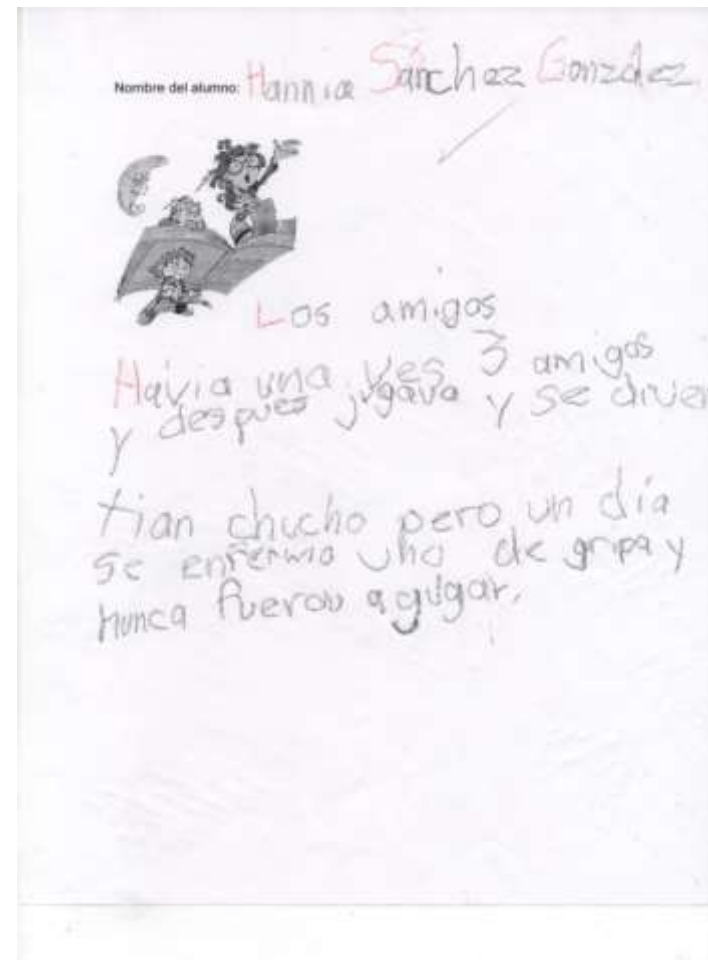 Nombre del alumno: Hannia Sánchez González
Los amigos
Havia una ves 3 amigos
y despues jugava y se diver
tian chucho pero un día
se enfermo uno de gripa y
nunca fueron a gugar.